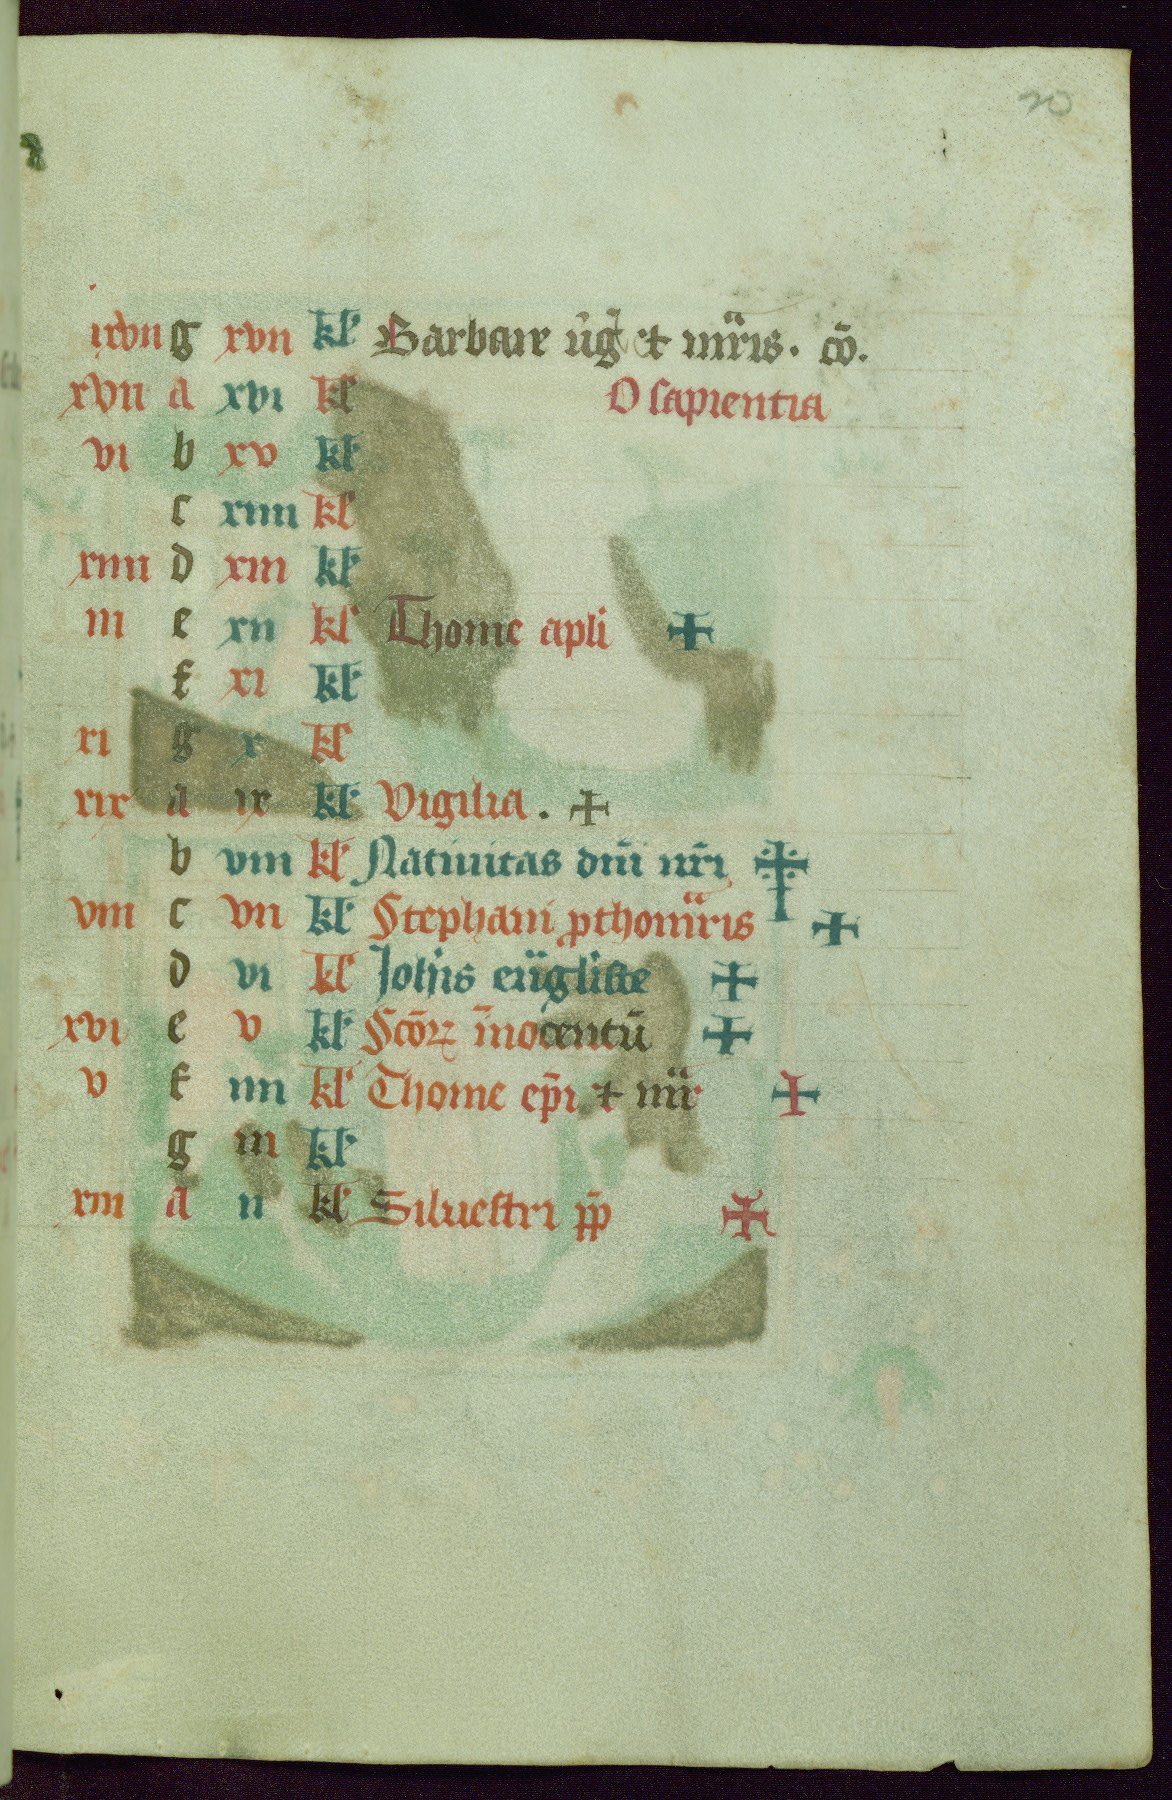 20
xvii g xvii kl Barbare v̄ḡ et mr̄is. cō.
xvii a xvi kl O sapientia
vi b xv kl
c xiiii kl
xiiii d xiii kl
iii e xii kl Thome apli
f xi kl
xi g x kl
xix a ix kl Vigilia.
b viii kl Natiuitas dn̄i nr̄i
viii c vii kl Stephani pthomr̄is
d vi kl Joh̄is eūgliste
xvi e v kl Scōꝝ īnocentū
v f iiii kl Thome ep̄i et mr̄
g iii kl
xiii a ii kl Siluestri pp̄